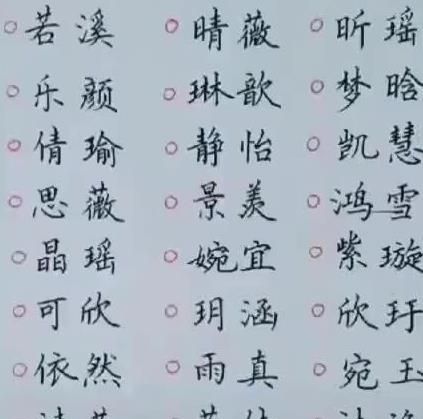 若溪 晴薇 昕瑶
乐颜 琳歆 梦晗
倩瑜 静怡 凯慧
思薇 景羡 鸿雪
晶瑶 婉宜 紫璇
可欣 玥涵 欣玗
依然 雨真 宛玉